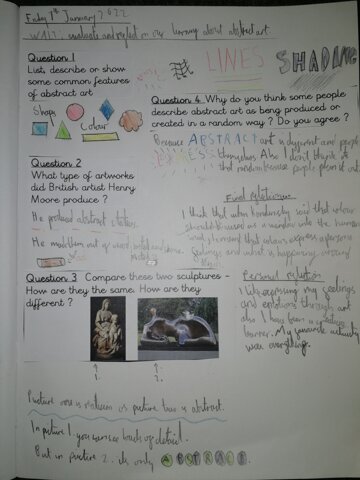 Friday 7th January 2022
WALT: evaluate and reflect on our learning about abstract art.
Question 1
List, describe or show
some common features
of abstract art
LINES
SHADING
Shape
Colour
Question 4 Why do you think some people
describe abstract art as being produced or
created in a random way ? Do you agree ?
Because ABSTRACT art is different and people
EXPRESS themselves. Also I don't think its
that random because people plan it out.
Question 2
What type of artworks
did British artist Henry
Moore produce ?
He produced abstract statues.
He made them out of wood, metal and stone.
Final reflection
I think that when Kandinsky said that colour
should be used as a window into the human
soul, he meant that colours express a persons
feelings and what is happening around
them
Question 3 Compare these two sculptures -
How are they the same. How are they
different ?
1.
2.
Personal reflection
I like expressing my feelings
and emotions through art
also I have been a creative
learner. My favourite activity
was everything.
Picture one is realism as picture two is abstract.
In picture 1 you can see loads of detail.
But in picture 2. its only ABSTRACT.